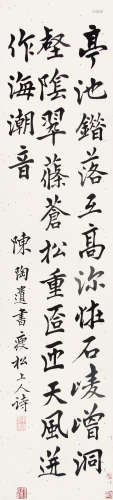 亭池錯落互高深恠石崚嶒洞
壑陰翠篠蒼松重匼匝天風迸
作海潮音
陳陶遺書瘦松上人詩